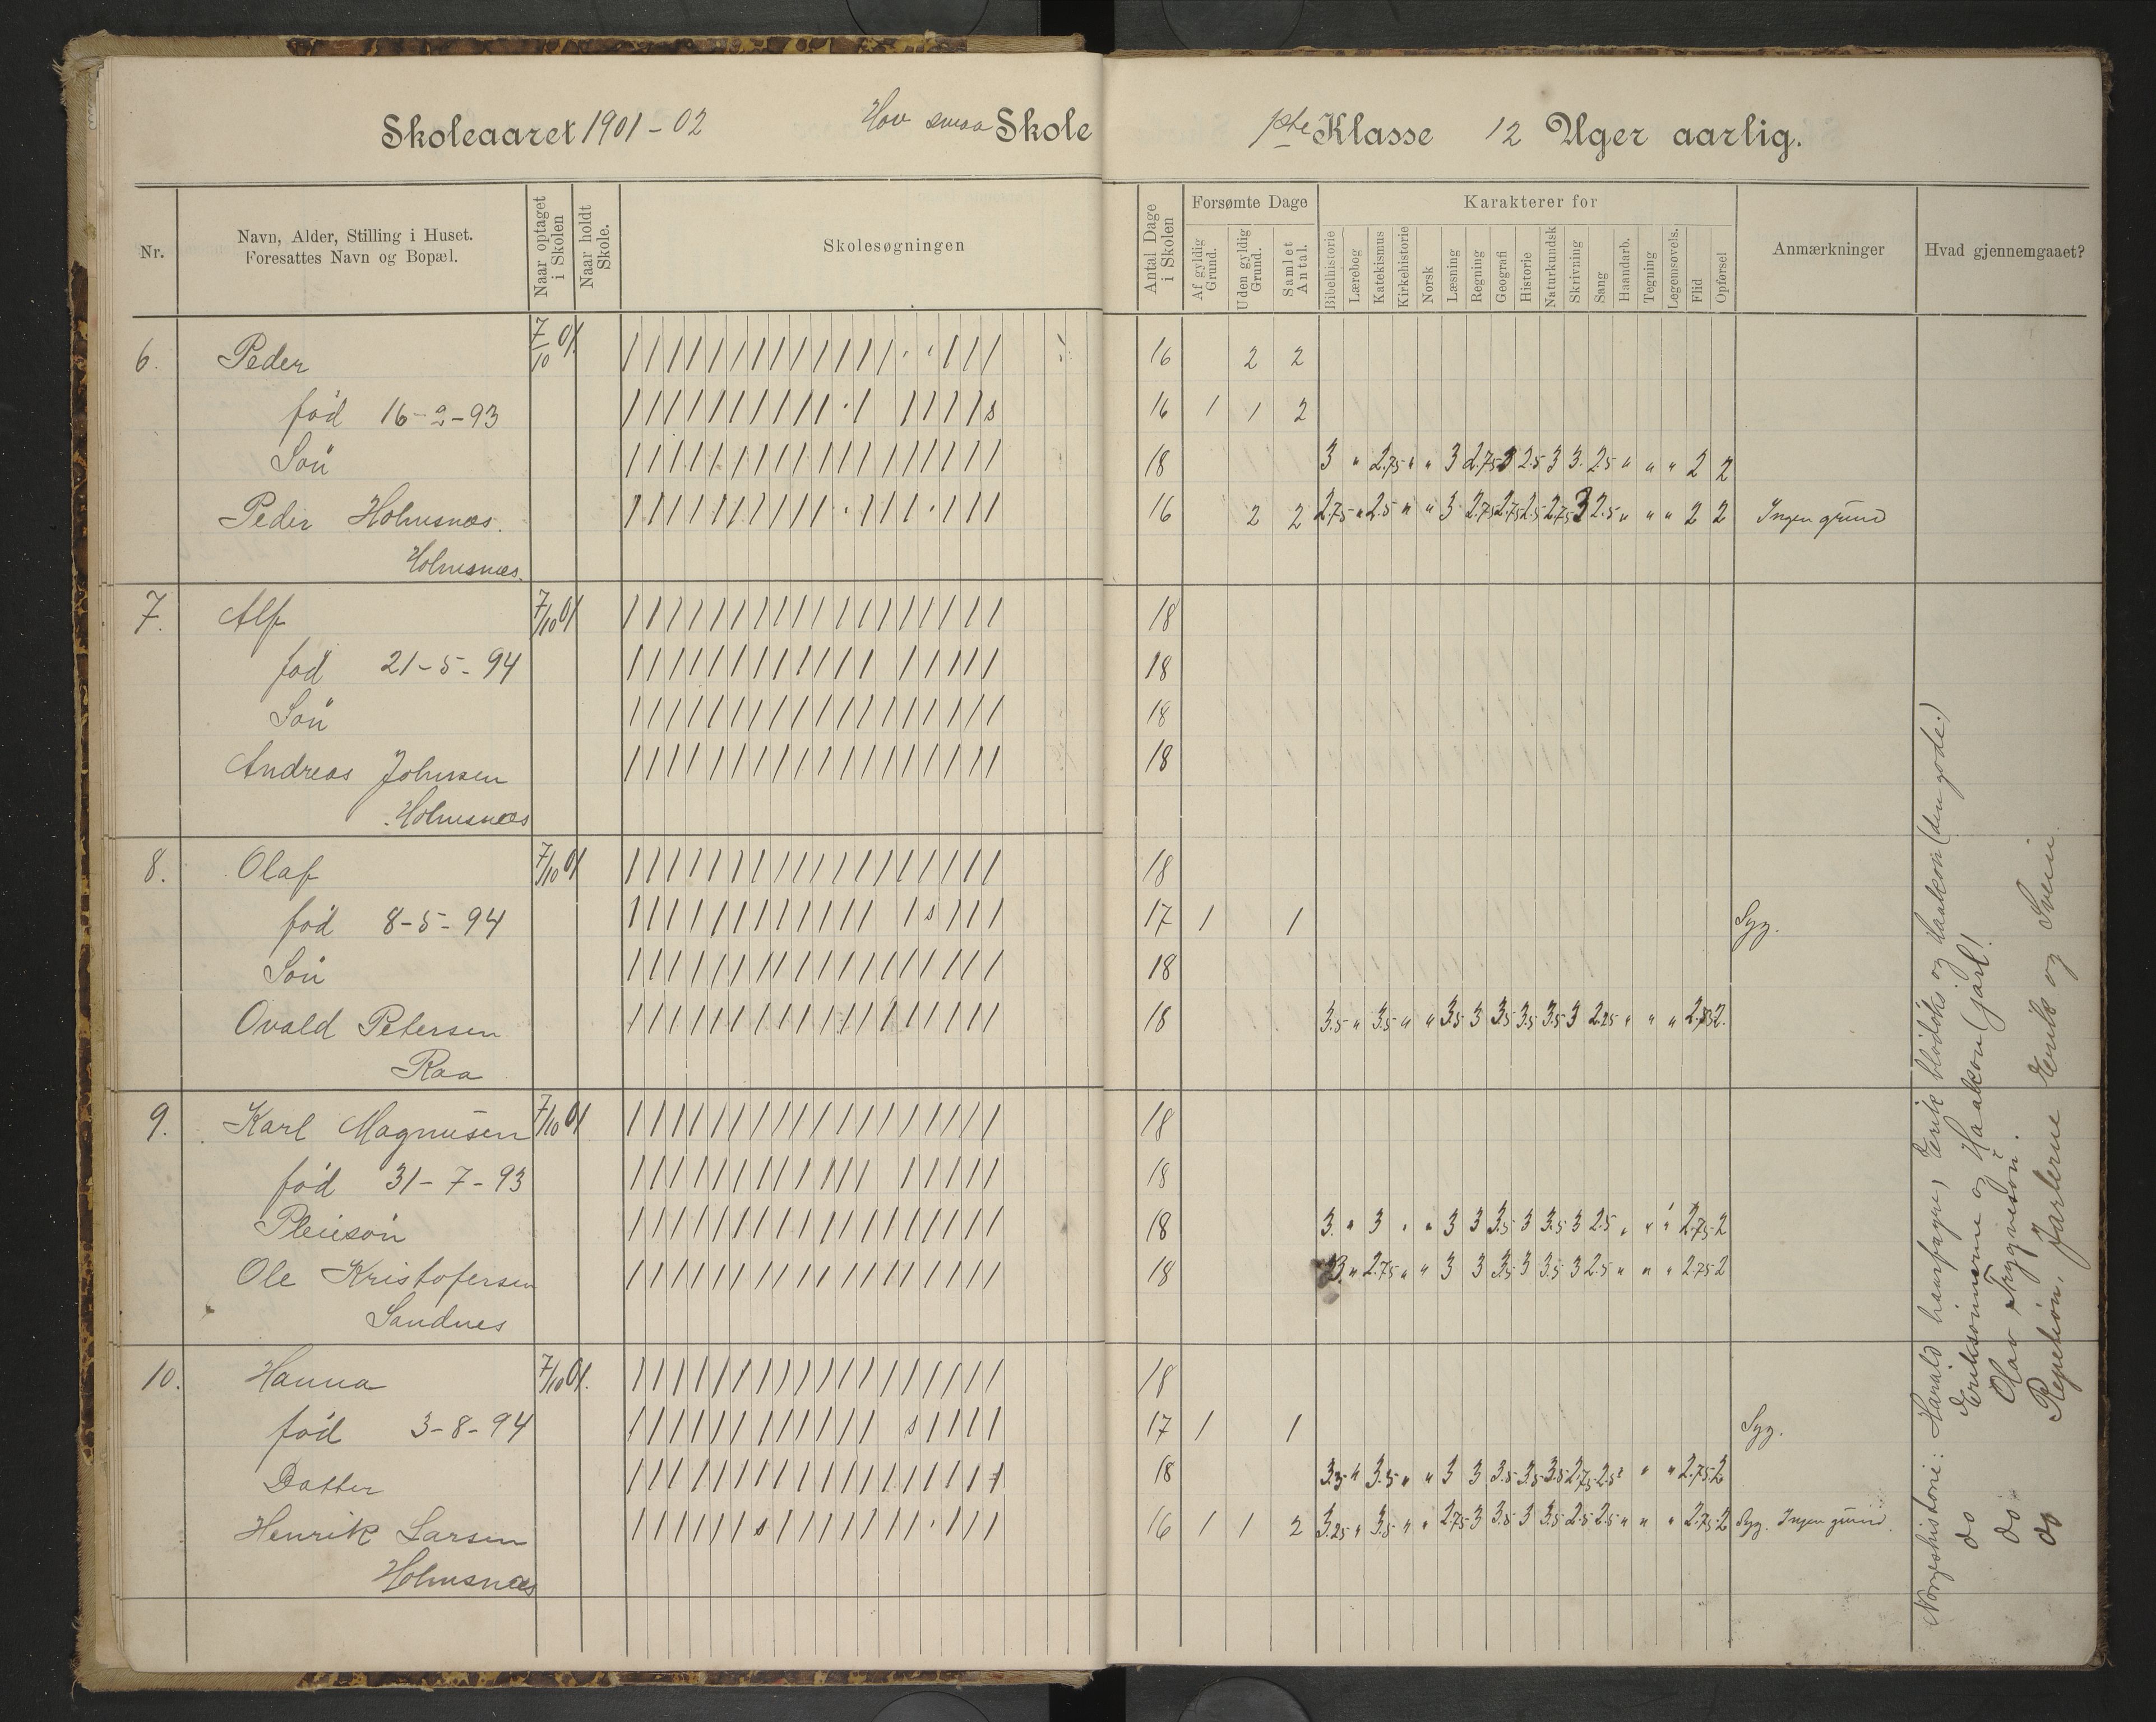 Skoleaaret 1901-02 Hov smaa Skole 1ste Klasse 12 Uger aarlig.
Nr. Navn, Alder, Stilling i Huset. Foresattes Navn og Bopæl. Naar optaget i Skolen Naar holdt Skole. Skolesøgningen Antal Dage i Skolen Forsømte Dage Karakterer for Anmærkninger Hvad gjennemgaaet?
Af gyldig Grund. Uden gyldig Grund. Samlet Antal. Bibelhistorie Lærebog Katekismus Kirkehistorie Norsk Læsning Regning Geografi Historie Naturkundsk Skrivning Sang Haandarb. Tegning Legemsøvels. Flid Opførsel
6. Peder 7/10 01. 16 2 2
fød 16-2-93 s 16 1 1 2
Søn 18 3 " 2.75 " " 3 2.75 3 2.5 3 3. 2.5 " " " 2 2
Peder Holmsnæs. 16 2 2 2.75 " 2.5 " " 3 2.75 2.75 2.5 2.75 3 2.5 " " " 2 2 Ingen grund
Holmsnæs.
7. Alf 7/10 01 18
fød 21-5-94 18
Søn 18
Andreas Johnsen 18
Holmsnæs
8. Olaf 7/10 01 18
fød 8-5-94 s 17 1 1 Syg.
Søn 18
Ovald Petersen 18 3.5 " 3.5 " " 3.5 3 3.5 3.5 3.5 3 2.25 " " " 2.75 2.
Raa
9. Karl Magnusen 7/10 01 18
fød 31-7-93 18
Pleiesøn 18 3. " 3 " " 3 3 3.5 3 3.5 3 2.5 " " " 2.75 2
Ole Kristofersen 18 3. " 2.75 " " 3 3 3.5 3 3.5 3 2.5 " " " 2.75 2
Sandnes
10. Hanna 7/10 01. 18
fød 3-8-94 s 17 1 1 Syg.
Datter 18 3.5 " 3.5 " " 3 3 3.5 3.5 3.5 2.75 2.5 " " " 2.75 2
Henrik Larsen s 16 1 1 2 3.25 " 3.5 " " 2.75 3 3.5 3 3.5 2.5 2.5 " " " 2.75 2 Syg. Ingen grund.
Holmsnæs
Norgeshistorie: Harald haarfagre, Erik blodøks og Haakon (den gode.)
do Erikssønnerne og Haakon (jarl).
do Olav Trygvesøn.
do Repetision, Jarlerne Erik og Svein